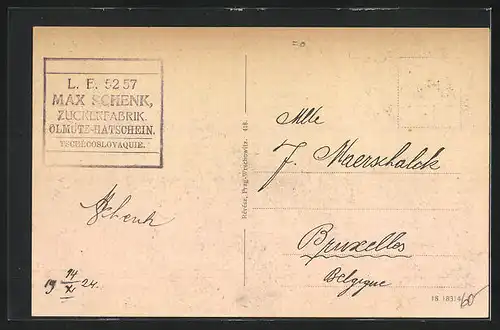 L. F. 5257
MAX SCHENK,
ZUCKERFABRIK.
ÖLMÜTZ-HATSCHEIN.
TSCHÉCOSLOVAQUIE.
Schenk
19 14/XI 24.
Prag-Wrschowitz. 418.
Mlle
J. Maerschalck
Bruxelles
Belgique
60